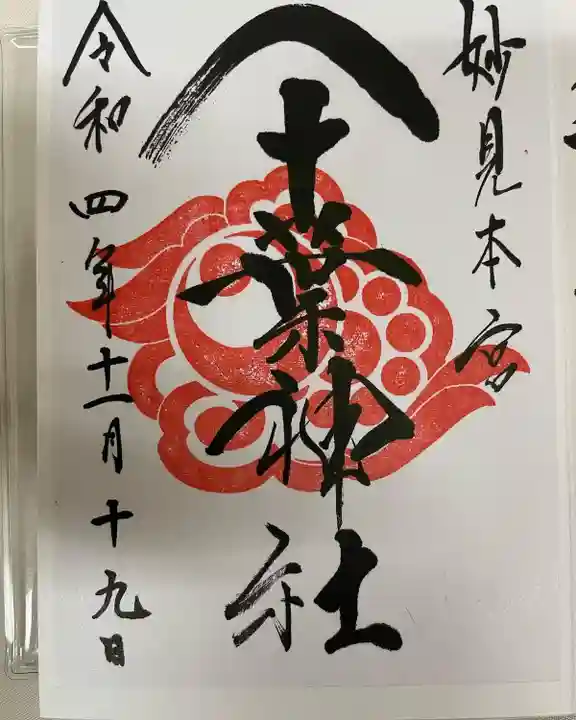 妙見本宮
千葉神社
令和四年十一月十九日